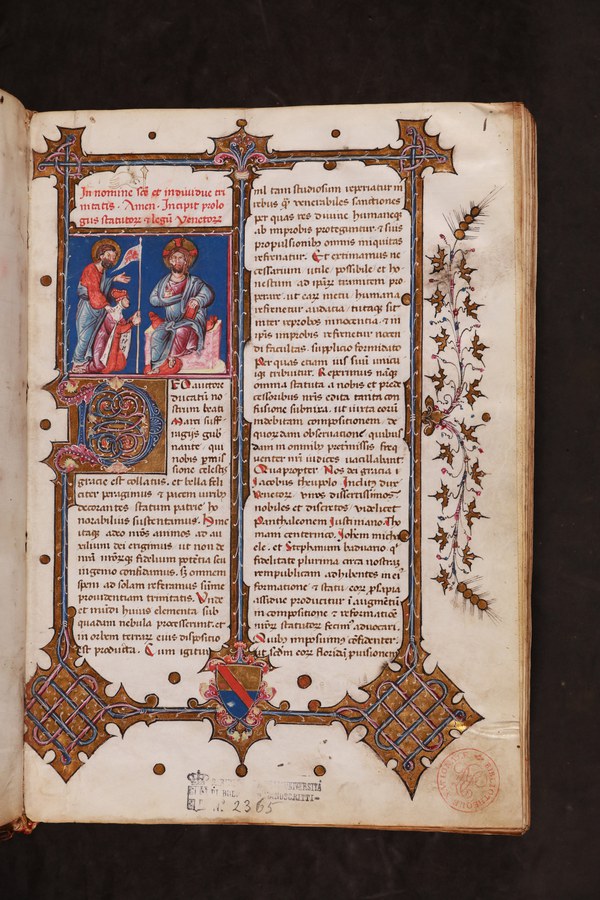 In nomine sce et individue tri
nitatis. Amen. Incipit prolo
gus statutorꝫ ⁊ legū Venetorꝫ
ED auctore
ducatū no
strum beati
Marci suff
ragijs gub
nante. qui
nobis
sione celestis
gracie est collatus. et bella feli
citer peragimus ⁊ pacem
decorantes statum patrie ho
norabilius sustentamus. hinc
itaqꝫ adeo nros animos ad au
xilium dei erigimus ut non de
nrī fidelium potētia seu
ingenio confidamus. sꝫ omnem
spem ad solam referamus sūme
prouidentiam trinitatis. Unde
et mūdi huius elementa sub
quadam nebula processerunt. et
in orbem terrarꝫ eius dispositio
est producta. Cum igitur
nil tam studiosum reperiatur in
rebus qꝫ venerabiles sanctiones
per quas res diuine humaneqꝫ
ab improbis proteguntur ⁊ suis
propulsionibꝫ omnis iniquitas
refrenatur. Et extimamus ne
cessarium utile possibile et ho
nestum ad ipsarꝫ tramitem pro
perare. ut earꝫ metu humana
refrenetur audacia. tutaqꝫ sit
inter reprobos innocentia. ⁊ in
ipsis improbis refrenetur nocen
di facultas supplicio formidato
Per quas etiam ius sui unicui
iqꝫ tribuatur. Reperimus nāqꝫ
omnia statuta a nobis et prede
cessoribus nris edita tanta con
fusione subnixa. ut iuxta eorū
indebitam compositionem. de
quorūdam obseruatione quibus
dam in omnibꝫ premissis freq
uenter nrī iudices uacillabant.
Quapropter Nos dei gracia
Jacobus theupolo Inclitꝫ dux
Venecorꝫ. viros dissertissimos
nobiles et discretos. videlicet
Panthaleonem Justiniano. Tho
mam centernico. Johem mich
ele. et Stephanum baduario qꝫ
fidelitate plurima circa nostrā
rempublicam adhibentes in ei
formatione ⁊ statu eorꝫ propria
assidue producitur ī augmentū
in compositione ⁊ reformatiōe
nrorꝫ statutorꝫ fecimꝫ aduocari.
Quibꝫ imposuimꝫ cōfidenter.
ut sedm eorꝫ floridā prouisionem
1
UNIVERSITÀ
MANOSCRITTI
N.º 2365